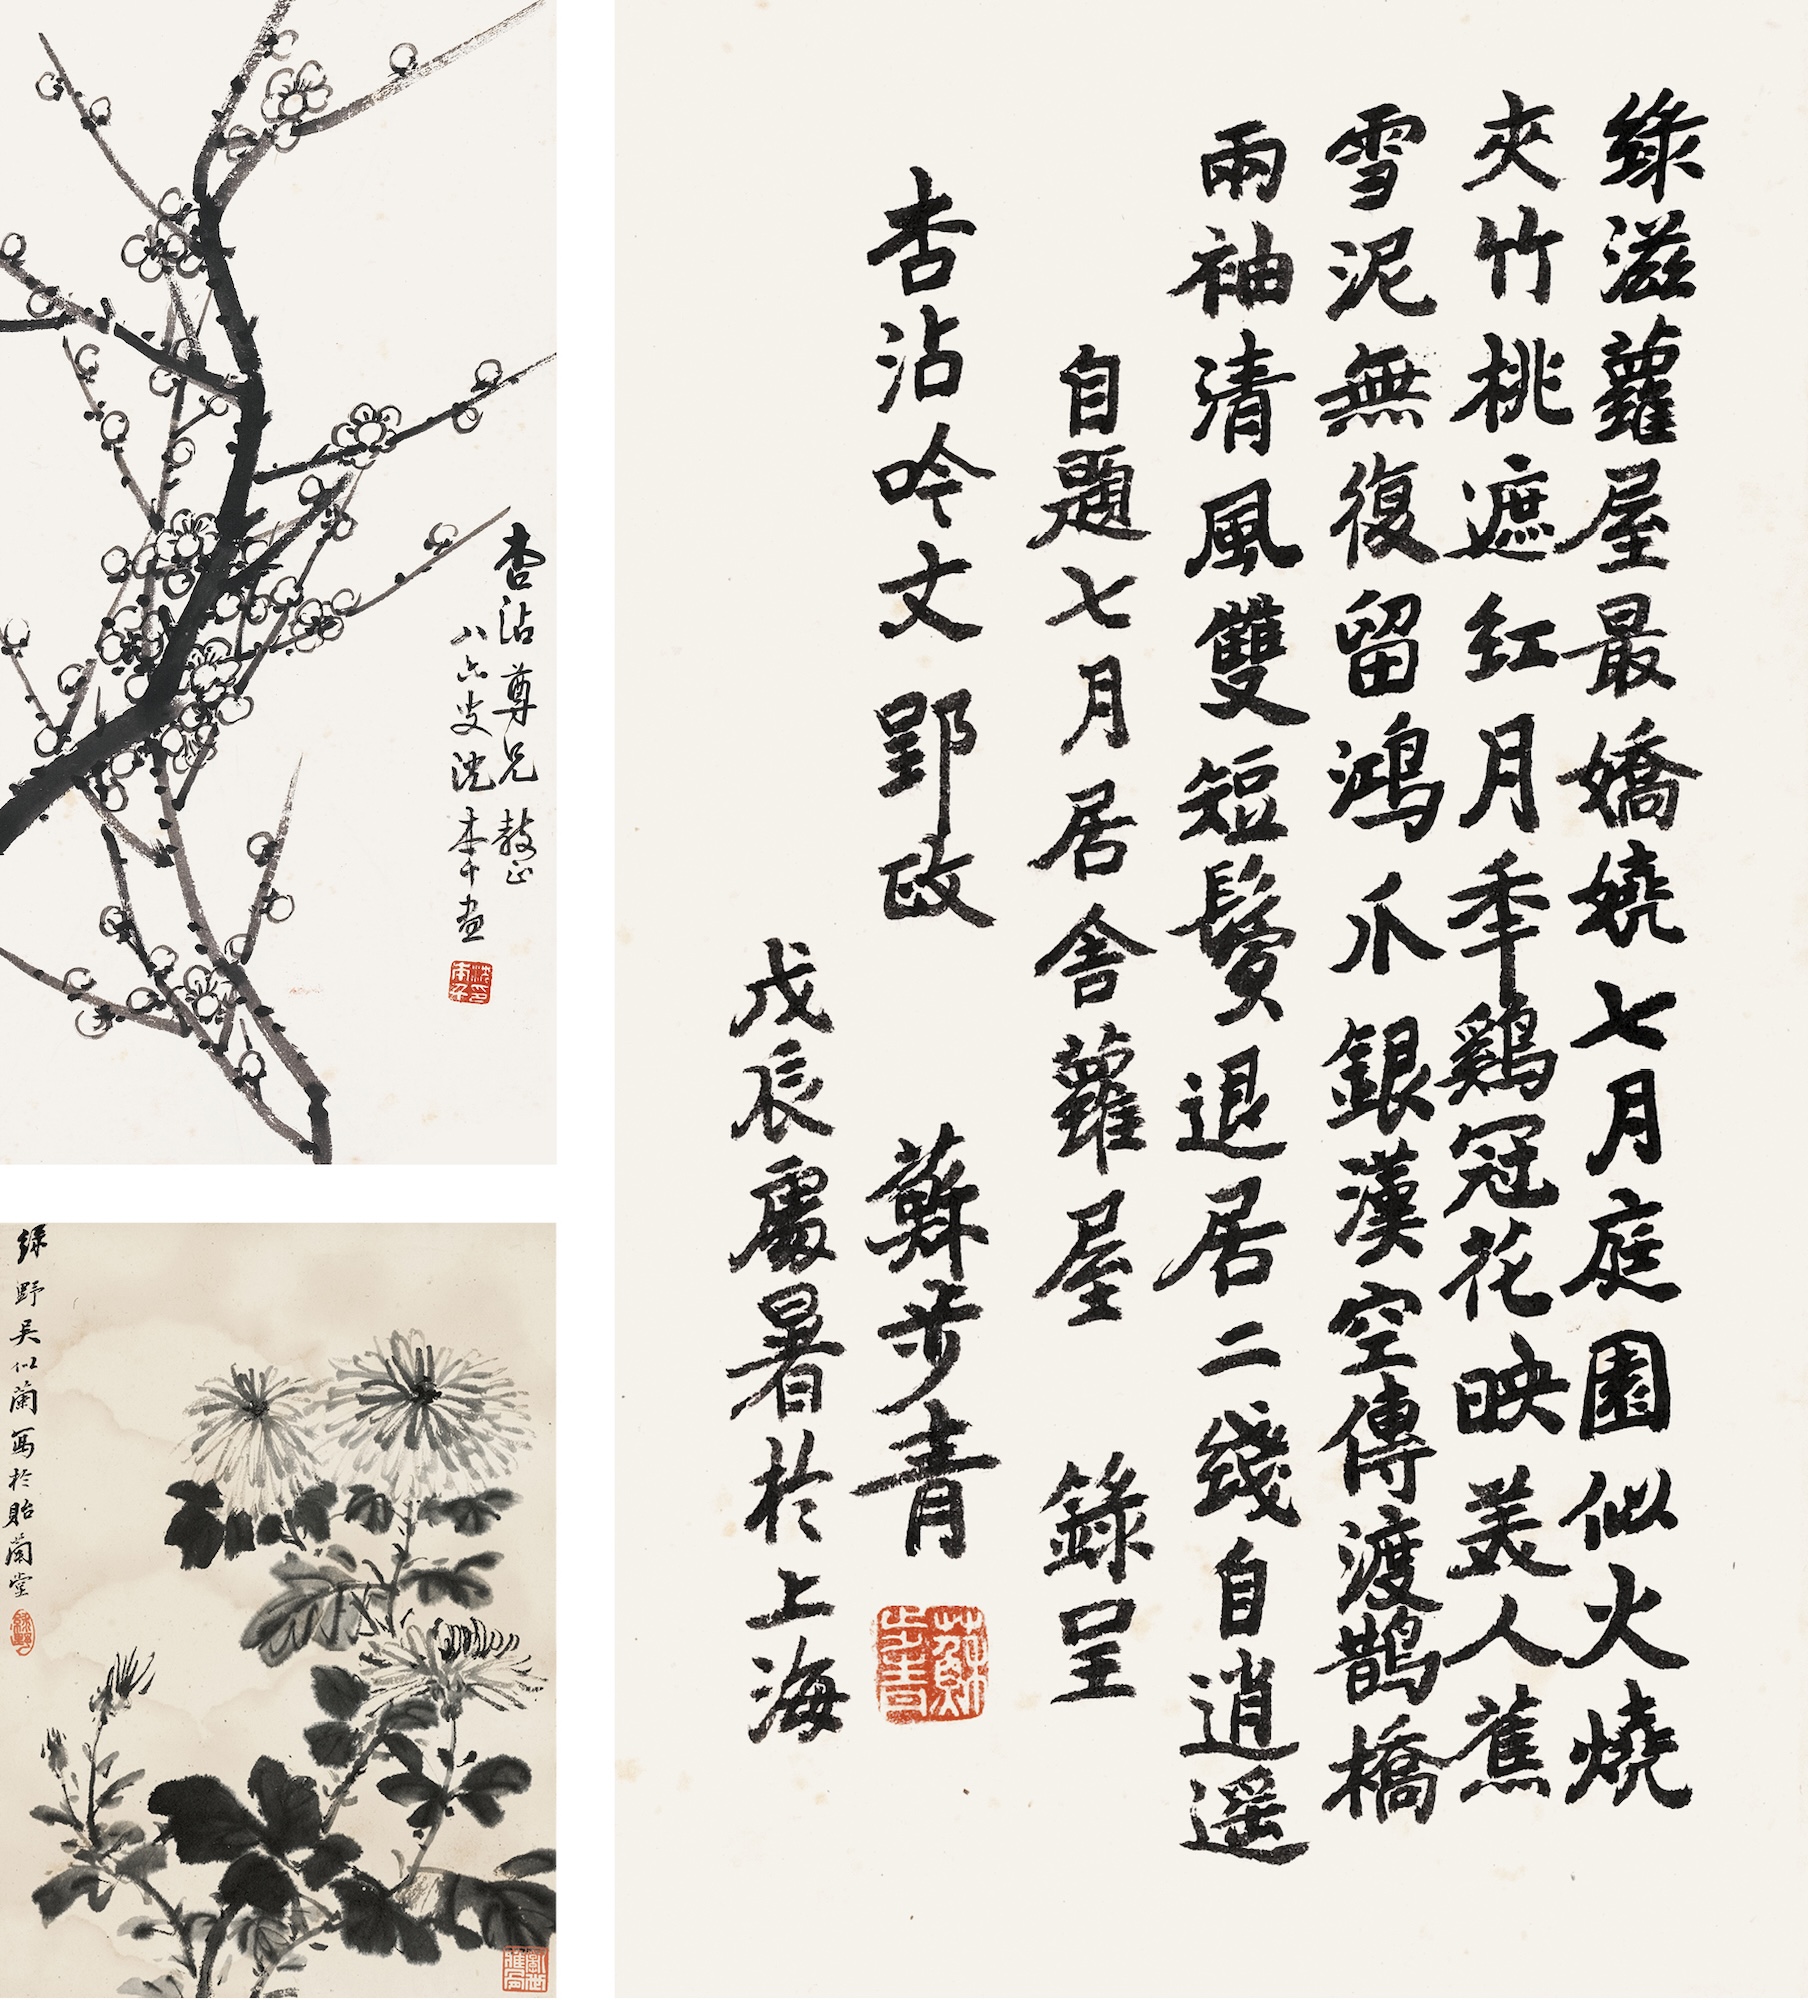 綠滋蘿屋最嬌嬈七月庭園似火燒
夾竹桃遮红月季鷄冠花映美人蕉
雪泥無復留鴻爪銀漢空傳渡鹊橋
兩袖清風雙短鬢退居二綫自逍遥
自題七月居舍蘿屋 錄呈
杏沾吟丈郢政 蘇步青
戊辰處暑於上海
蘇步青
杏沾尊兄教正
八六叟沈本千画
沈本千印
綠野吴似蘭寫於貽蘭堂
綠野